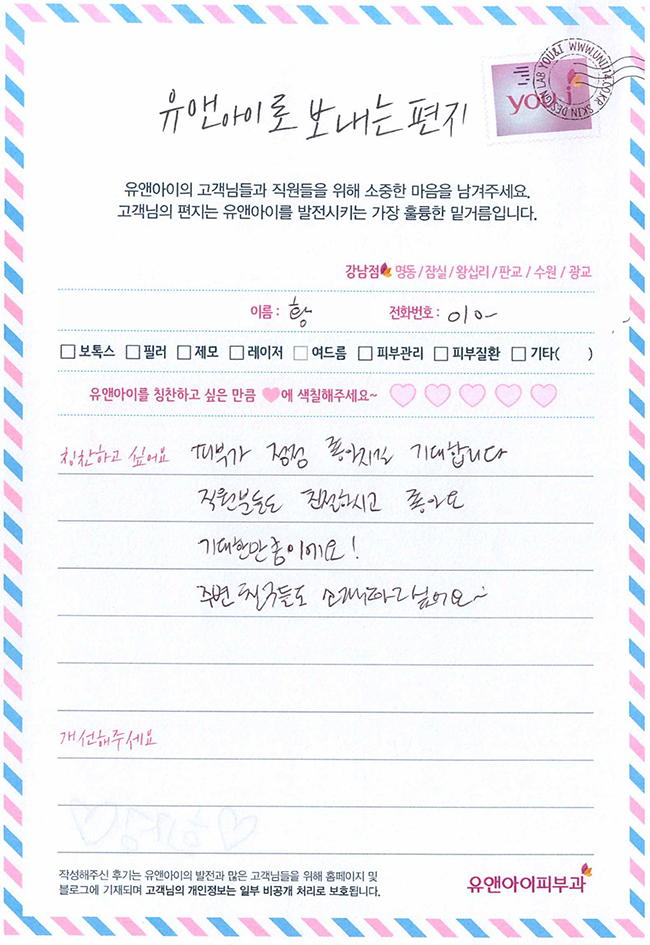 SKIN DESIGN LAB YOU&I WWW.UNI114.CO.KR
you i
유앤아이로 보내는 편지
유앤아이의 고객님들과 직원들을 위해 소중한 마음을 남겨주세요.
고객님의 편지는 유앤아이를 발전시키는 가장 훌륭한 밑거름입니다.
강남점 명동 / 잠실 / 왕십리 / 판교 / 수원 / 광교
이름 : 황 전화번호 : 010-
보톡스 필러 제모 레이저 여드름 피부관리 피부질환 기타( )
유앤아이를 칭찬하고 싶은 만큼 에 색칠해주세요~
칭찬하고 싶어요 피부가 점점 좋아지길 기대합니다
직원분들도 친절하시고 좋아요
기대한만큼이에요!
주변 친구들도 소개해주고 싶어요~
개선해주세요
작성해주신 후기는 유앤아이의 발전과 많은 고객님들을 위해 홈페이지 및
블로그에 기재되며 고객님의 개인정보는 일부 비공개 처리로 보호됩니다.
유앤아이피부과